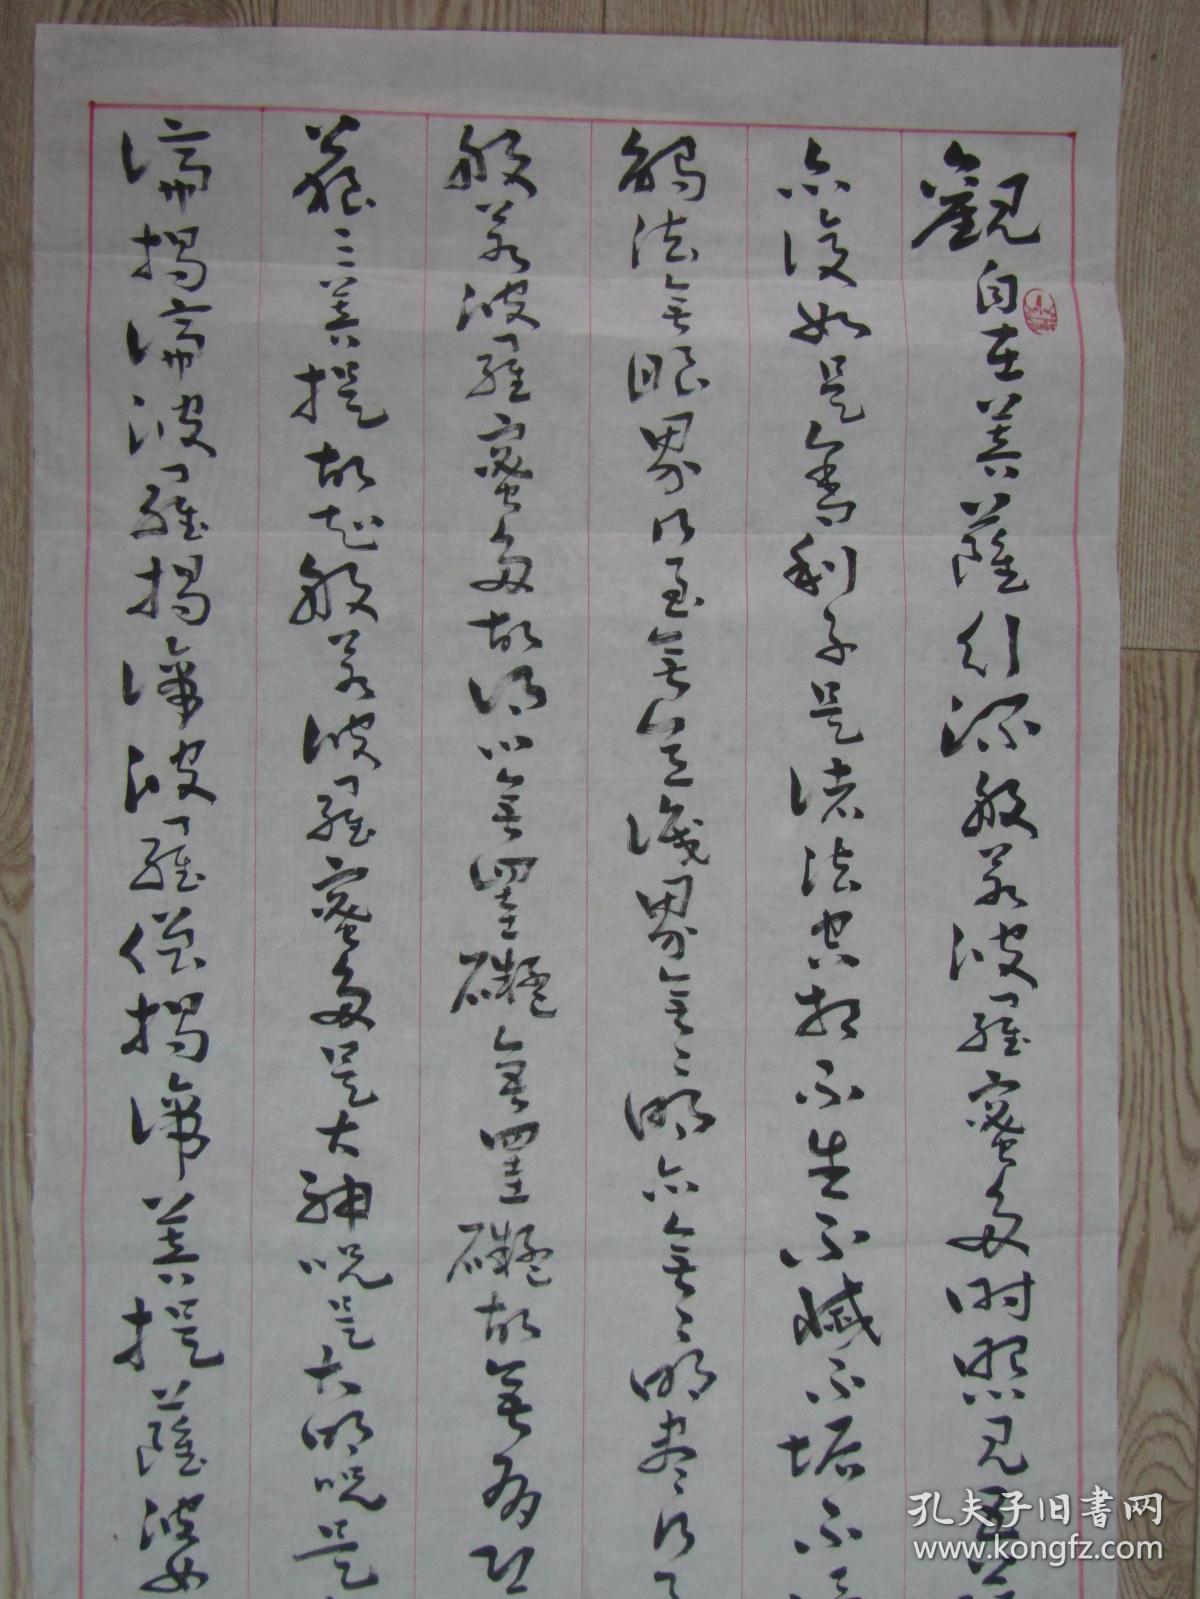 觀自在菩薩行深般若波羅蜜多時照見五
亦復如是舍利子是諸法空相不生不滅不垢不
觸法無眼界乃至無意識界無〻明亦無〻明盡乃
般若波羅蜜多故得心無罣礙無罣礙故無有恐
藐三菩提故知般若波羅蜜多是大神咒是大明咒是
諦揭諦波羅揭諦波羅僧揭諦菩提薩婆
孔夫子旧书网
www.kongfz.com